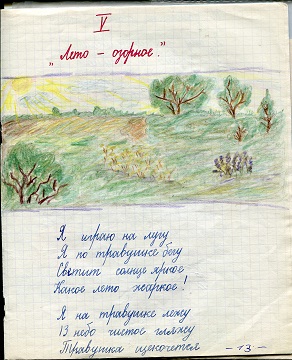 V
„Лето – озорное."
Я играю на лугу
Я по травушке бегу
Светит солнце яркое
Какое лето жаркое!
Я на травушке лежу
В небо чистое гляжу
Травушка щекочется
-13-